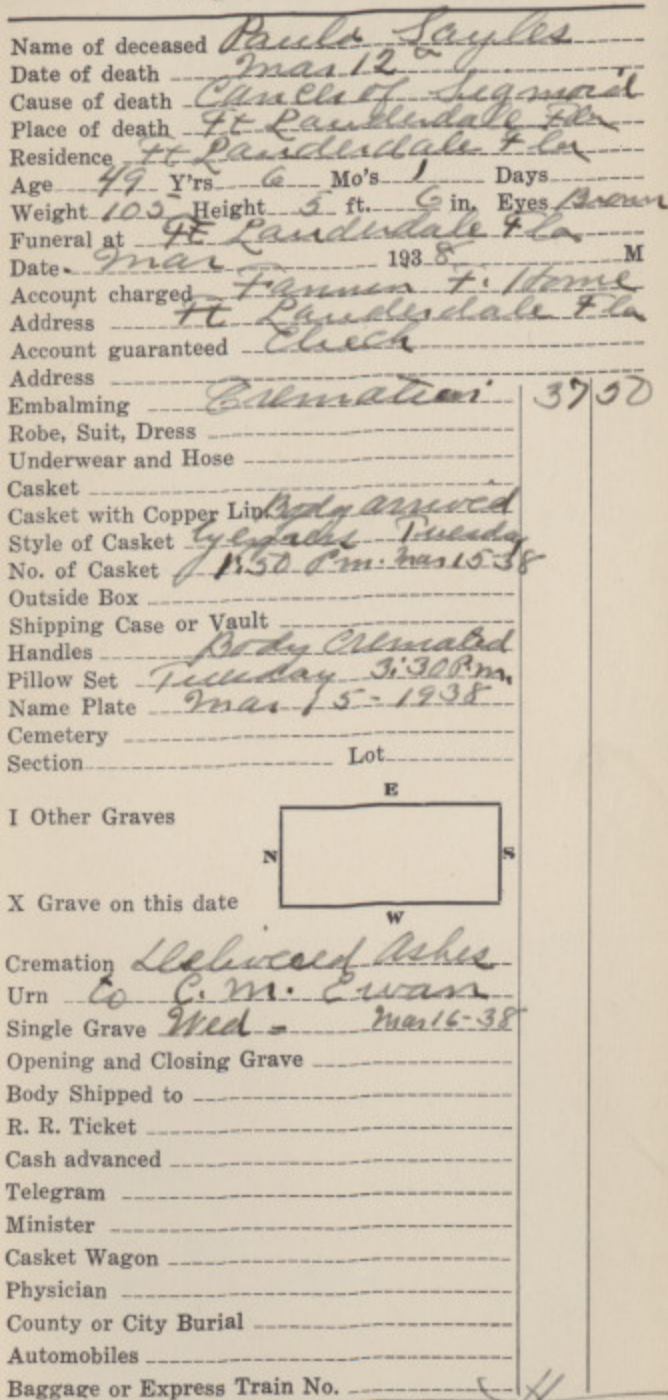 Name of deceased Paula Sayles
Date of death Mar 12
Cause of death Cancer of Sigmoid
Place of death Ft Lauderdale Fla
Residence Ft Lauderdale Fla
Age 49 Y'rs 6 Mo's 1 Days
Weight 105 Height 5 ft. 6 in. Eyes Brown
Funeral at Ft Lauderdale Fla
Date Mar 1938 M
Account charged Fannin F. Home
Address Ft Lauderdale Fla
Account guaranteed Check
Address
Embalming Cremation 37 50
Robe, Suit, Dress
Underwear and Hose
Casket
Casket with Copper Lin. Body arrived
Style of Casket Tuesday
No. of Casket 1:50 Pm. Mar 15-38
Outside Box
Shipping Case or Vault
Handles Body Cremated
Pillow Set Tuesday 3:30 Pm.
Name Plate Mar 15-1938
Cemetery
Section Lot
E
I Other Graves
N S
X Grave on this date
W
Cremation Delivered Ashes
Urn to C. M. Ewan
Single Grave Wed - Mar 16-38
Opening and Closing Grave
Body Shipped to
R. R. Ticket
Cash advanced
Telegram
Minister
Casket Wagon
Physician
County or City Burial
Automobiles
Baggage or Express Train No.